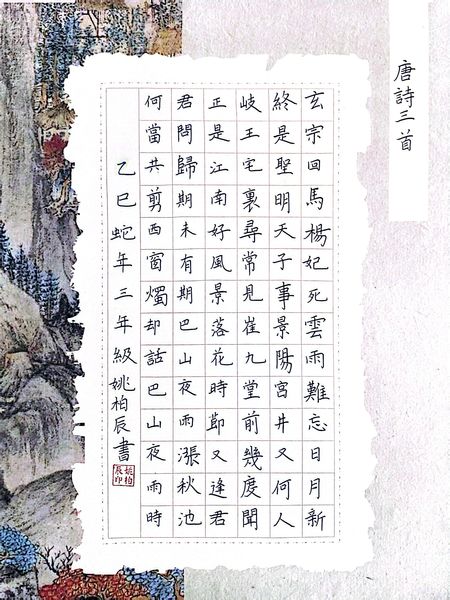 唐詩三首
玄宗回馬楊妃死雲雨難忘日月新
終是聖明天子事景陽宮井又何人
岐王宅裏尋常見崔九堂前幾度聞
正是江南好風景落花時節又逢君
君問歸期未有期巴山夜雨漲秋池
何當共剪西窗燭却話巴山夜雨時
乙巳蛇年三年級姚柏辰書
姚柏辰印